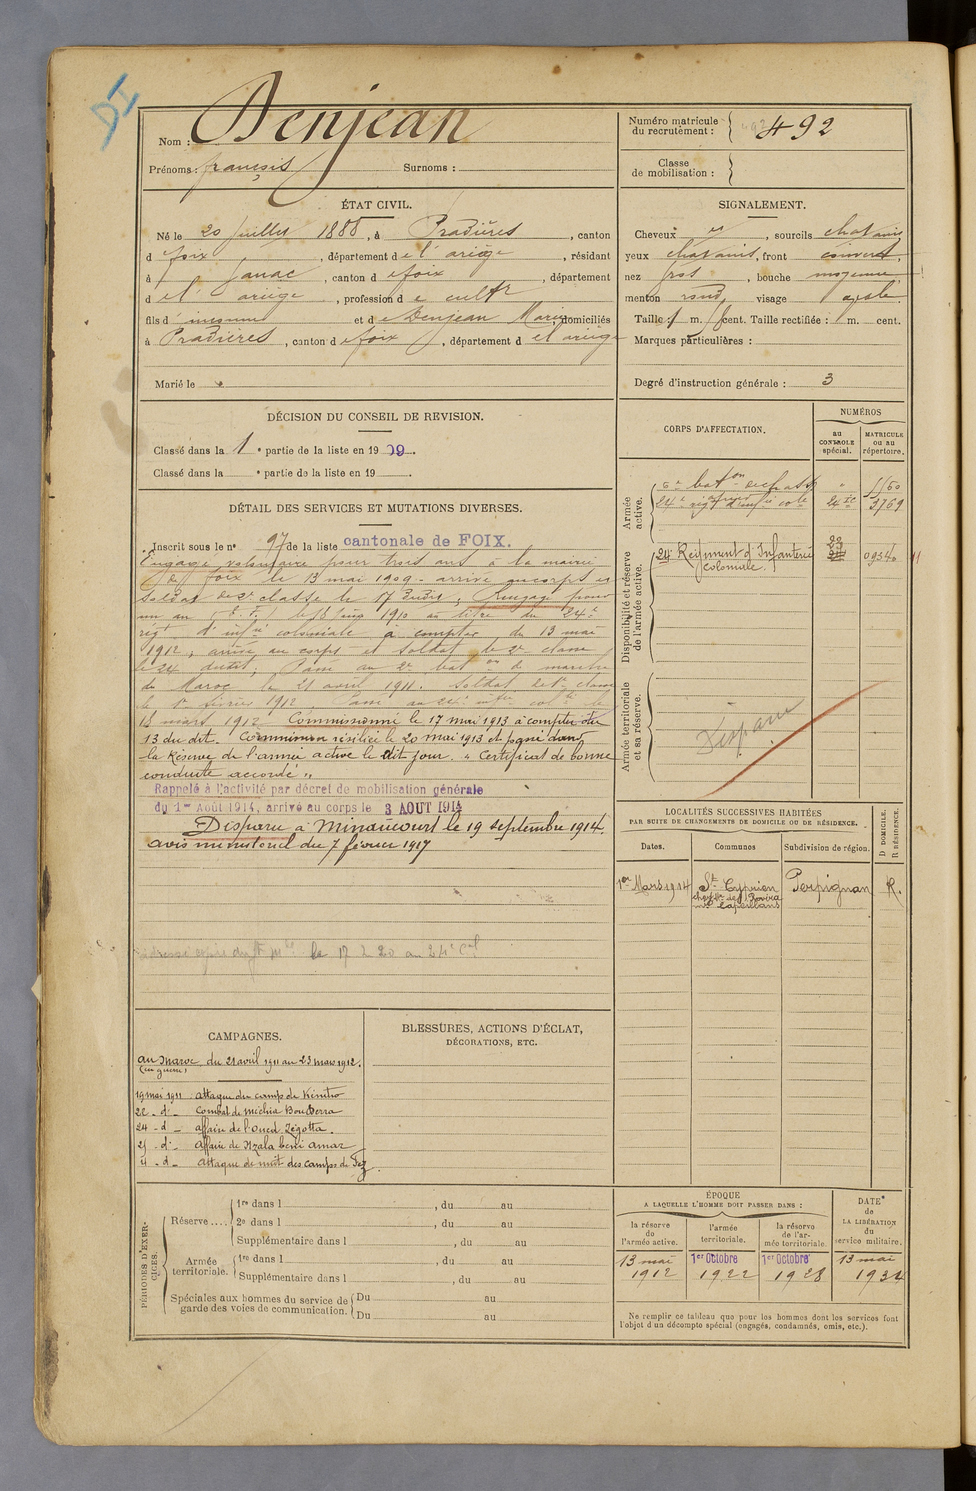 DI
Nom : Denjean
Prénoms : françois Surnoms :
Numéro matricule
du recrutement : 492
Classe
de mobilisation :
ÉTAT CIVIL.
Né le 20 juillet 1888, à Pradières, canton
d foix, département de l'ariège, résidant
à Ganac, canton de foix, département
de l'ariège, profession de cultr
fils d inconnu et de Denjean Marie, domiciliés
à Pradières, canton de foix, département de l'ariège
Marié le
SIGNALEMENT.
Cheveux et, sourcils chatains
yeux chatains, front couvert,
nez gros, bouche moyenne,
menton rond, visage ovale.
Taille : 1 m. cent. Taille rectifiée : 1 m. cent.
Marques particulières :
Degré d'instruction générale : 3
DÉCISION DU CONSEIL DE REVISION.
Classé dans la 1 e partie de la liste en 1909.
Classé dans la e partie de la liste en 19
CORPS D'AFFECTATION.
NUMÉROS
au
CONTROLE
spécial.
MATRICULE
ou au
répertoire.
Armée
active.
24e regt d'infie cole 24 IC 3769
Disponibilité et réserve
de l'armée active.
24 Régiment d'Infanterie
coloniale.
Armée territoriale
et sa réserve.
Disparu
DÉTAIL DES SERVICES ET MUTATIONS DIVERSES.
Inscrit sous le no 97 de la liste cantonale de FOIX.
Engagé volontaire pour trois ans à la mairie
de foix le 13 mai 1909 - arrivé au corps et
soldat de 2e classe le 17 dudit; Rengagé pour
un an le 18 juin 1910 au titre du 24e
régt d'infie coloniale à compter du 13 mai
1912; arrivé au corps et soldat de 2e classe
le 24 dudit; Passé au 2e baton de marche
du Maroc le 21 avril 1911. Soldat de 1e classe
le 1er février 1912. Passé au 24e infie colle le
18 mars 1912. Commissionné le 17 mai 1913 à compter du
13 du dit. Commission résiliée le 20 mai 1913 et passé dans
la Réserve de l'armée active le dit jour. "Certificat de bonne
conduite accordé"
Rappelé à l'activité par décret de mobilisation générale
du 1er Août 1914, arrivé au corps le 3 AOUT 1914
Disparu à Minaucourt le 19 septembre 1914,
avis ministériel du 7 février 1917
le 17 2 20 au 24e Cal
LOCALITÉS SUCCESSIVES HABITÉES
PAR SUITE DE CHANGEMENTS DE DOMICILE OU DE RÉSIDENCE.
Dates. Communes Subdivision de région. D DOMICILE. R RÉSIDENCE.
1er Mars 1914 St Cyprien Perpignan R.
CAMPAGNES.
au Maroc, du 21 avril 1911 au 23 mars 1912.
(en guerre)
19 mai 1911 : attaque du camp de Kenitra
22 - d° - Combat de Méchra Bou Derra
24 - d° - affaire de l'oued Zegotta.
25 - d° - affaire de Nzala beni amar
- d° - attaque de nuit des camps de Fez.
BLESSURES, ACTIONS D'ÉCLAT,
DÉCORATIONS, ETC.
PÉRIODES D'EXERCICES.
Réserve .... 1re dans l , du au
2e dans l , du au
Supplémentaire dans l , du au
Armée
territoriale. 1re dans l , du au
Supplémentaire dans l , du au
Spéciales aux hommes du service de
garde des voies de communication. Du au
Du au
ÉPOQUE
A LAQUELLE L'HOMME DOIT PASSER DANS :
la réserve
de
l'armée active.
l'armée
territoriale.
la réserve
de l'ar-
mée territoriale.
DATE*
de
LA LIBÉRATION
du
service militaire.
13 mai 1912
1er Octobre 1922
1er Octobre 1928
13 mai 1934
Ne remplir ce tableau que pour les hommes dont les services font
l'objet d'un décompte spécial (engagés, condamnés, omis, etc.).